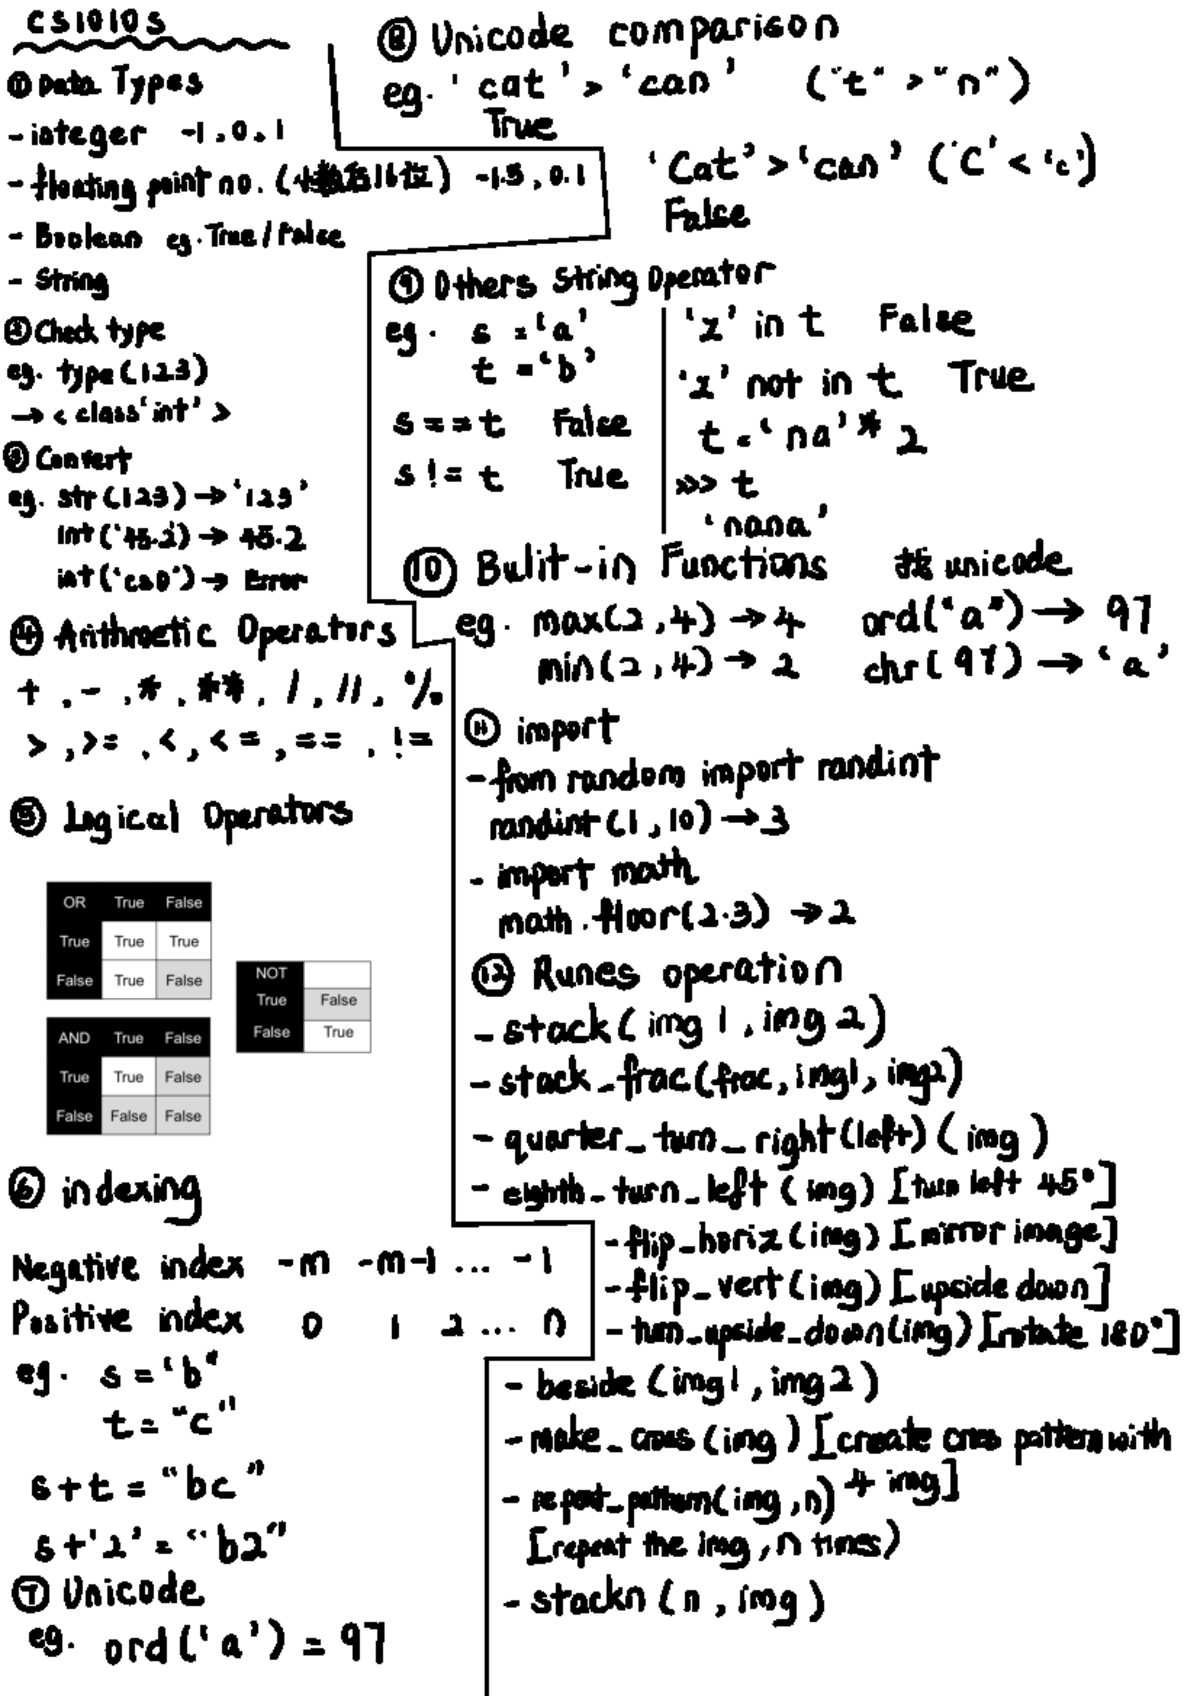 CS1010S
① Data Types
- integer -1, 0, 1
- floating point no. (小数点后16位) -1.5, 0.1
- Boolean eg. True / False
- String
② Check type
eg. type(123)
→ < class 'int' >
③ Convert
eg. str(123) → '123'
int('45.2) → 45.2
int('cs0') → Error
④ Arithmetic Operators
+ , - , * , ** , / , // , %
> , >= , < , <= , == , !=
⑤ Logical Operators
OR True False
True True True
False True False
NOT
True False
False True
AND True False
True True False
False False False
⑥ indexing
Negative index -m -m-1 ... -1
Positive index 0 1 2 ... n
eg. s = 'b"
t = "c"
s+t = "bc"
s+'2' = "b2"
⑦ Unicode
eg. ord('a') = 97
⑧ Unicode comparison
eg. 'cat' > 'can' ("t" > "n")
True
'Cat' > 'can' ('C' < 'c')
False
⑨ Others String Operator
eg. s = 'a'
t = 'b'
s == t False
s != t True
'z' in t False
'z' not in t True
t = 'na' * 2
>>> t
'nana'
⑩ Bulit-in Functions 找 unicode
eg. max(2,4) → 4 ord("a") → 97
min(2,4) → 2 chr(97) → 'a'
⑪ import
- from random import randint
randint(1,10) → 3
- import math
math.floor(2.3) → 2
⑫ Runes operation
- stack(img1, img2)
- stack_frac(frac, img1, img2)
- quarter_turn_right(left)(img)
- eighth_turn_left(img) [turn left 45°]
- flip_horiz(img) [mirror image]
- flip_vert(img) [upside down]
- turn_upside_down(img) [rotate 180°]
- beside(img1, img2)
- make_cross(img) [create cross pattern with
4 img]
- repeat_pattern(img, n)
[repeat the img, n times)
- stackn(n, img)